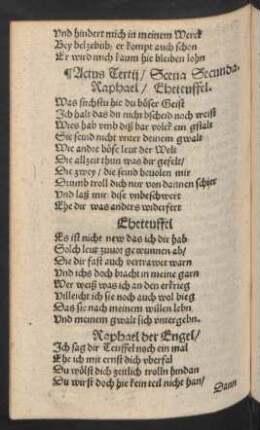 Vnd hindert mich in meinem Werck
Bey belzebub; er kompt auch schon
Er wird mich kaum hie bleiben lohn
¶Actus Tertij / Scena Secunda.
Raphael / Eheteuffel.
Was suchstu hie du böser Geist
Ich halt das du nicht bscheid noch weist
Wies hab vmb diß bar volck ein gstalt
Sie seind nicht vnter deinem gwalt
Wie andre böse leut der Welt
Die allzeit thun was dir gefelt/
Die zwey / die seind beuolen mir
Drumb troll dich nur von dannen schier
Vnd laß mir dise vnbeschwert
Ehe dir was anders widerfert
Eheteuffel
Es ist nicht new das ich dir hab
Solch leut zuuor gewunnen ab/
Die dir fast auch vertrawet warn
Vnd ichs doch bracht in meine garn
Wer weiß was ich an den erkrieg
Villeicht ich sie noch auch wol bieg
Das sie nach meinem willen lebn
Vnd meinem gwalt sich vntergebn.
Raphael der Engel/
Ich sag dir Teuffel noch ein mal
Ehe ich mit ernst dich vberfal
Du wölst dich zeitlich trolln hindan
Du wirst doch hie kein teil nicht han/
Dann